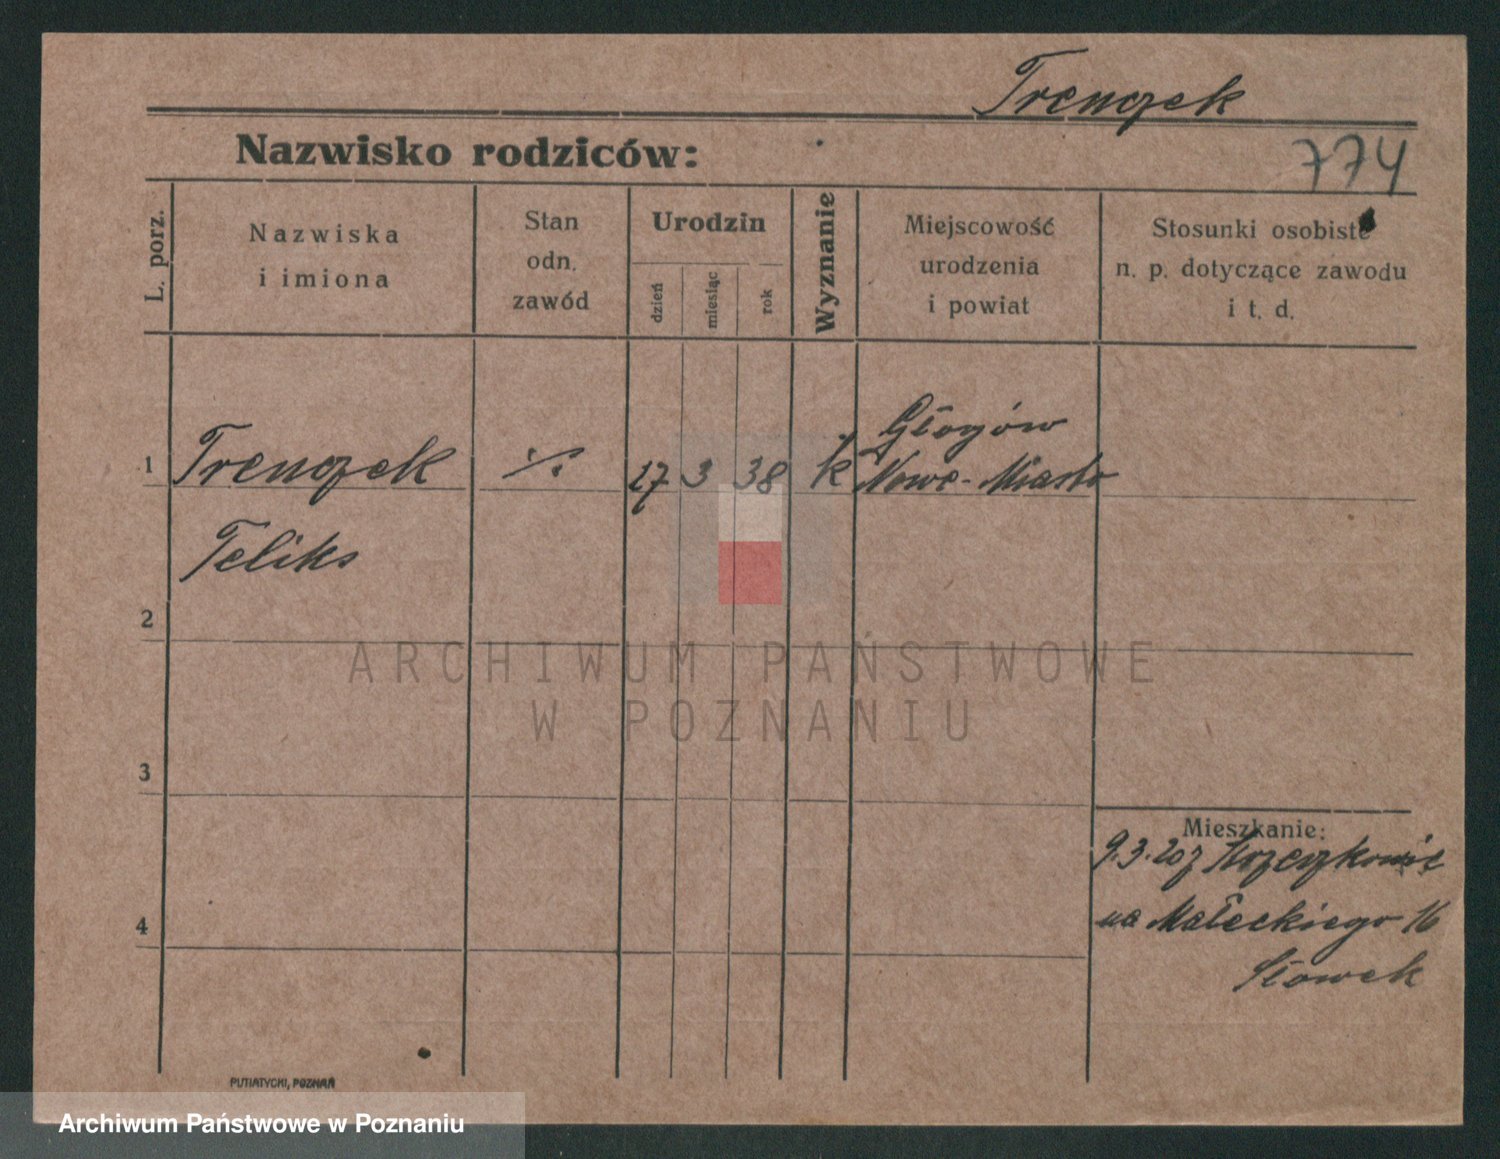 Trenczek
Nazwisko rodziców:
774
L. porz.
Nazwiska
i imiona
Stan
odn.
zawód
Urodzin
dzień
miesiąc
rok
Wyznanie
Miejscowość
urodzenia
i powiat
Stosunki osobiste
n. p. dotyczące zawodu
i t. d.
1
Trenczek
27
3
38
k
Głogów
Nowe-Miasto
Feliks
2
ARCHIWUM PAŃSTWOWE
W POZNANIU
3
Mieszkanie:
9.3.20 z
na Małeckiego 16
4
PUTIATYCKI, POZNAŃ
Archiwum Państwowe w Poznaniu